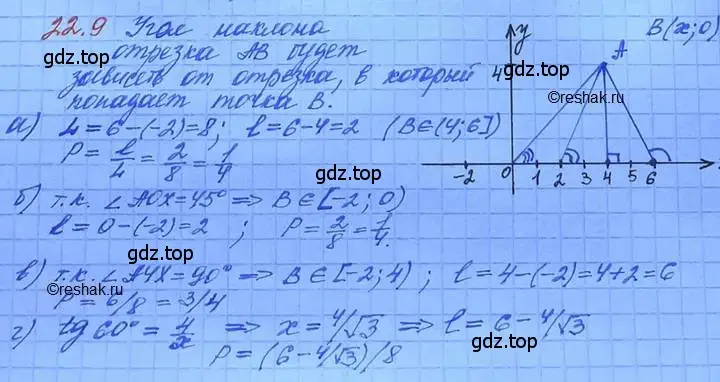 22.9 Угол наклона
отрезка AB будет
зависеть от отрезка, в который
попадает точка B.
а) L=6-(-2)=8; l=6-4=2 (B∈(4;6])
P = l/4 = 2/8 = 1/4
б) т.к. ∠AOX=45° => B∈[-2;0)
l=0-(-2)=2 ; P=2/8=1/4.
в) т.к. ∠A4X=90° => B∈[-2;4) ; l=4-(-2)=4+2=6
P=6/8=3/4
г) tg60°=4/x => x=4/√3 => l=6-4/√3
P=(6-4/√3)/8
B(x;0)
y
A
4
-2 0 1 2 3 4 5 6
gdz.top
gdz.top
gdz.top
gdz.top
gdz.top
gdz.top
gdz.top
©reshak.ru
©reshak.ru
©reshak.ru